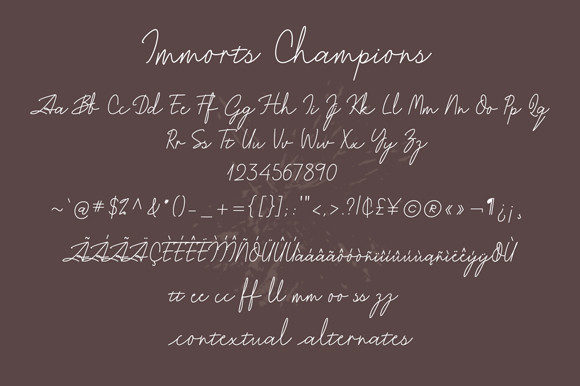 Immorts Champions
Aa Bb Cc Dd Ee Ff Gg Hh Ii Jj Kk Ll Mm Nn Oo Pp Qq
Rr Ss Tt Uu Vv Ww Xx Yy Zz
1234567890
~`@#$%^&*()-_+={[}];:'"<,>.?/|₵£¥©®«»¬¶¿¡¸
tt ee cc ff ll mm oo ss zz
contextual alternates